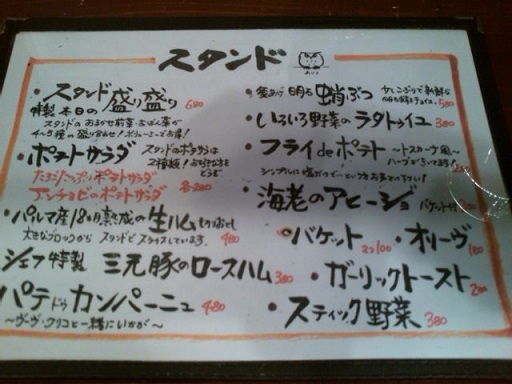 スタンド
・スタンド盛り盛り 680
特製 本日の
スタンドのおまかせ前菜
4〜5種の盛り合わせ!ボリューミーでお得!
・ポテトサラダ
スタンドのポテサラは
2種類!
たまごたっぷりポテトサラダ
アンチョビのポテトサラダ 各280
・パルマ産18ヶ月熟成の生ハム
大きなブロックから スタンドでスライスしています。 480
シェフ特製 三元豚のロースハム 380
パテ ドゥ カンパーニュ 480
〜ヴーヴ・クリコと一緒にいかが〜
・釜あげ 明石 蛸ぶつ 500
・いろいろ野菜のラタトゥイユ 380
・フライ de ポテト 〜トスカーナ風〜
ハーブがきいてます!
シンプルに塩だけで
・海老のアヒージョ バケット付
・バケット 2コ100
・オリーヴ 180
・ガーリックトースト 200
・スティック野菜 380